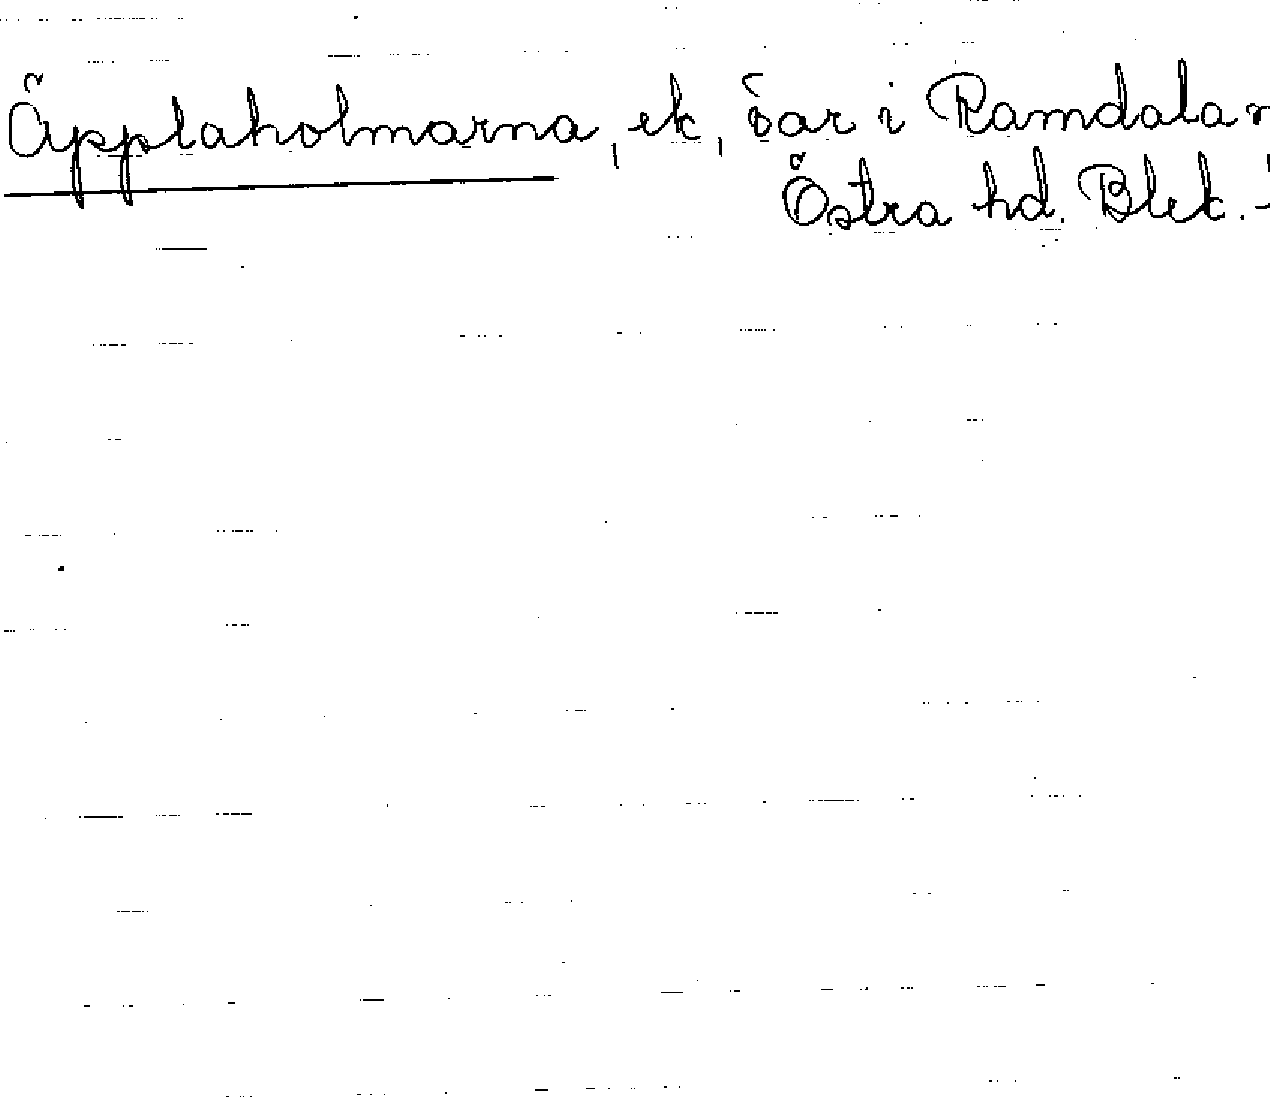 Äpplaholmarna, ek, öar i Ramdala
Östra hd. Blek.